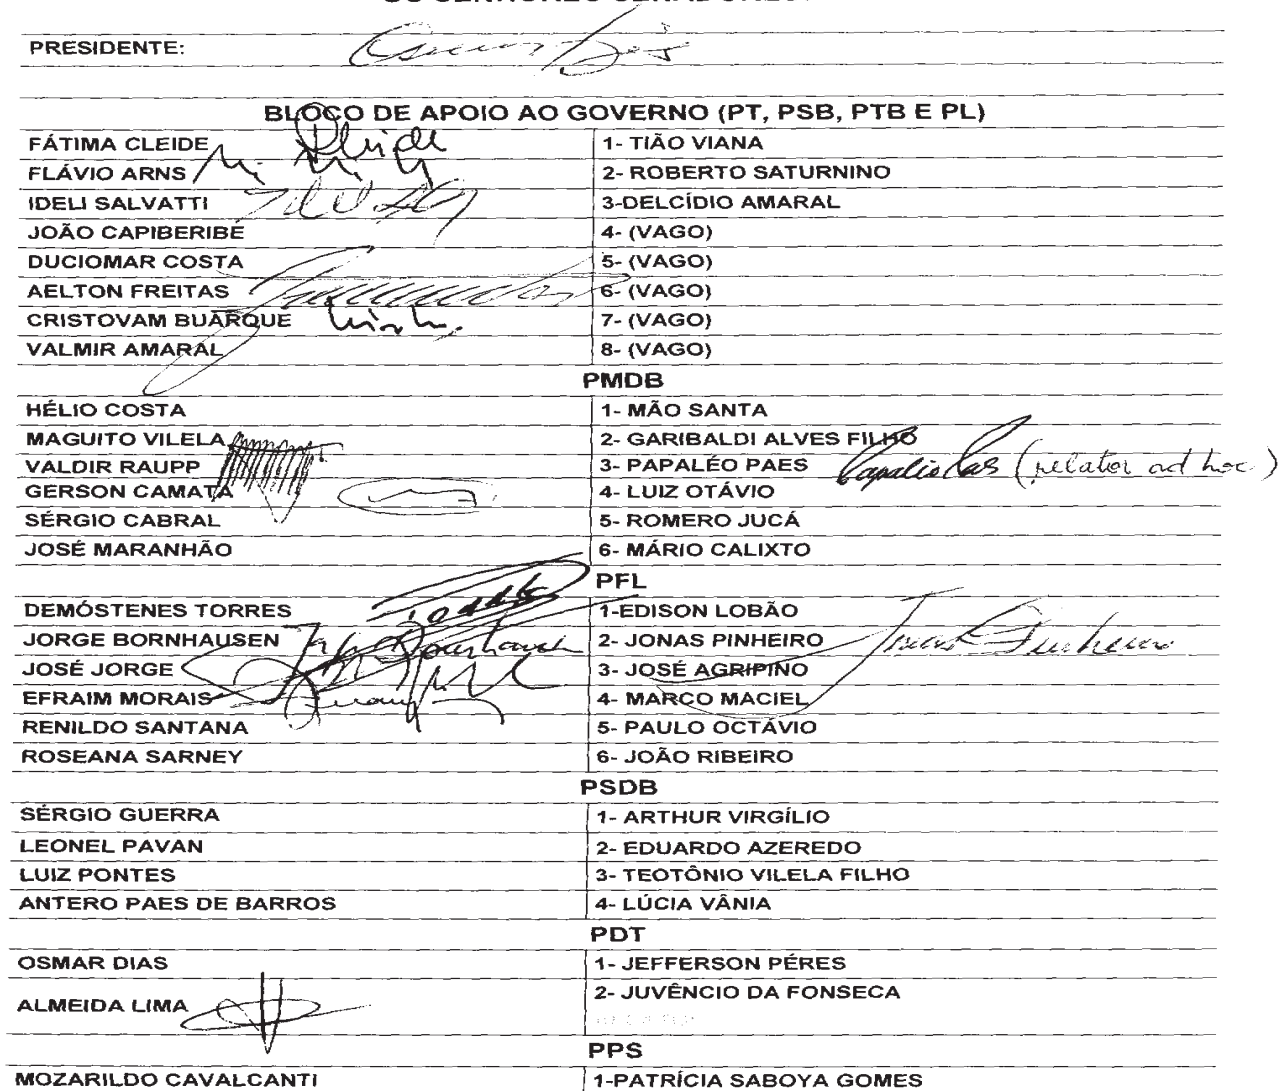 PRESIDENTE: Osmar Dias
BLOCO DE APOIO AO GOVERNO (PT, PSB, PTB E PL)
FÁTIMA CLEIDE 1- TIÃO VIANA
FLÁVIO ARNS 2- ROBERTO SATURNINO
IDELI SALVATTI 3-DELCÍDIO AMARAL
JOÃO CAPIBERIBE 4- (VAGO)
DUCIOMAR COSTA 5- (VAGO)
AELTON FREITAS 6- (VAGO)
CRISTOVAM BUARQUE 7- (VAGO)
VALMIR AMARAL 8- (VAGO)
PMDB
HÉLIO COSTA 1- MÃO SANTA
MAGUITO VILELA 2- GARIBALDI ALVES FILHO
VALDIR RAUPP 3- PAPALÉO PAES Papaléo Paes (relator ad hoc)
GERSON CAMATA 4- LUIZ OTÁVIO
SÉRGIO CABRAL 5- ROMERO JUCÁ
JOSÉ MARANHÃO 6- MÁRIO CALIXTO
PFL
DEMÓSTENES TORRES 1-EDISON LOBÃO
JORGE BORNHAUSEN 2- JONAS PINHEIRO Jonas Pinheiro
JOSÉ JORGE 3- JOSÉ AGRIPINO
EFRAIM MORAIS 4- MARCO MACIEL
RENILDO SANTANA 5- PAULO OCTÁVIO
ROSEANA SARNEY 6- JOÃO RIBEIRO
PSDB
SÉRGIO GUERRA 1- ARTHUR VIRGÍLIO
LEONEL PAVAN 2- EDUARDO AZEREDO
LUIZ PONTES 3- TEOTÔNIO VILELA FILHO
ANTERO PAES DE BARROS 4- LÚCIA VÂNIA
PDT
OSMAR DIAS 1- JEFFERSON PÉRES
ALMEIDA LIMA 2- JUVÊNCIO DA FONSECA
PPS
MOZARILDO CAVALCANTI 1-PATRÍCIA SABOYA GOMES